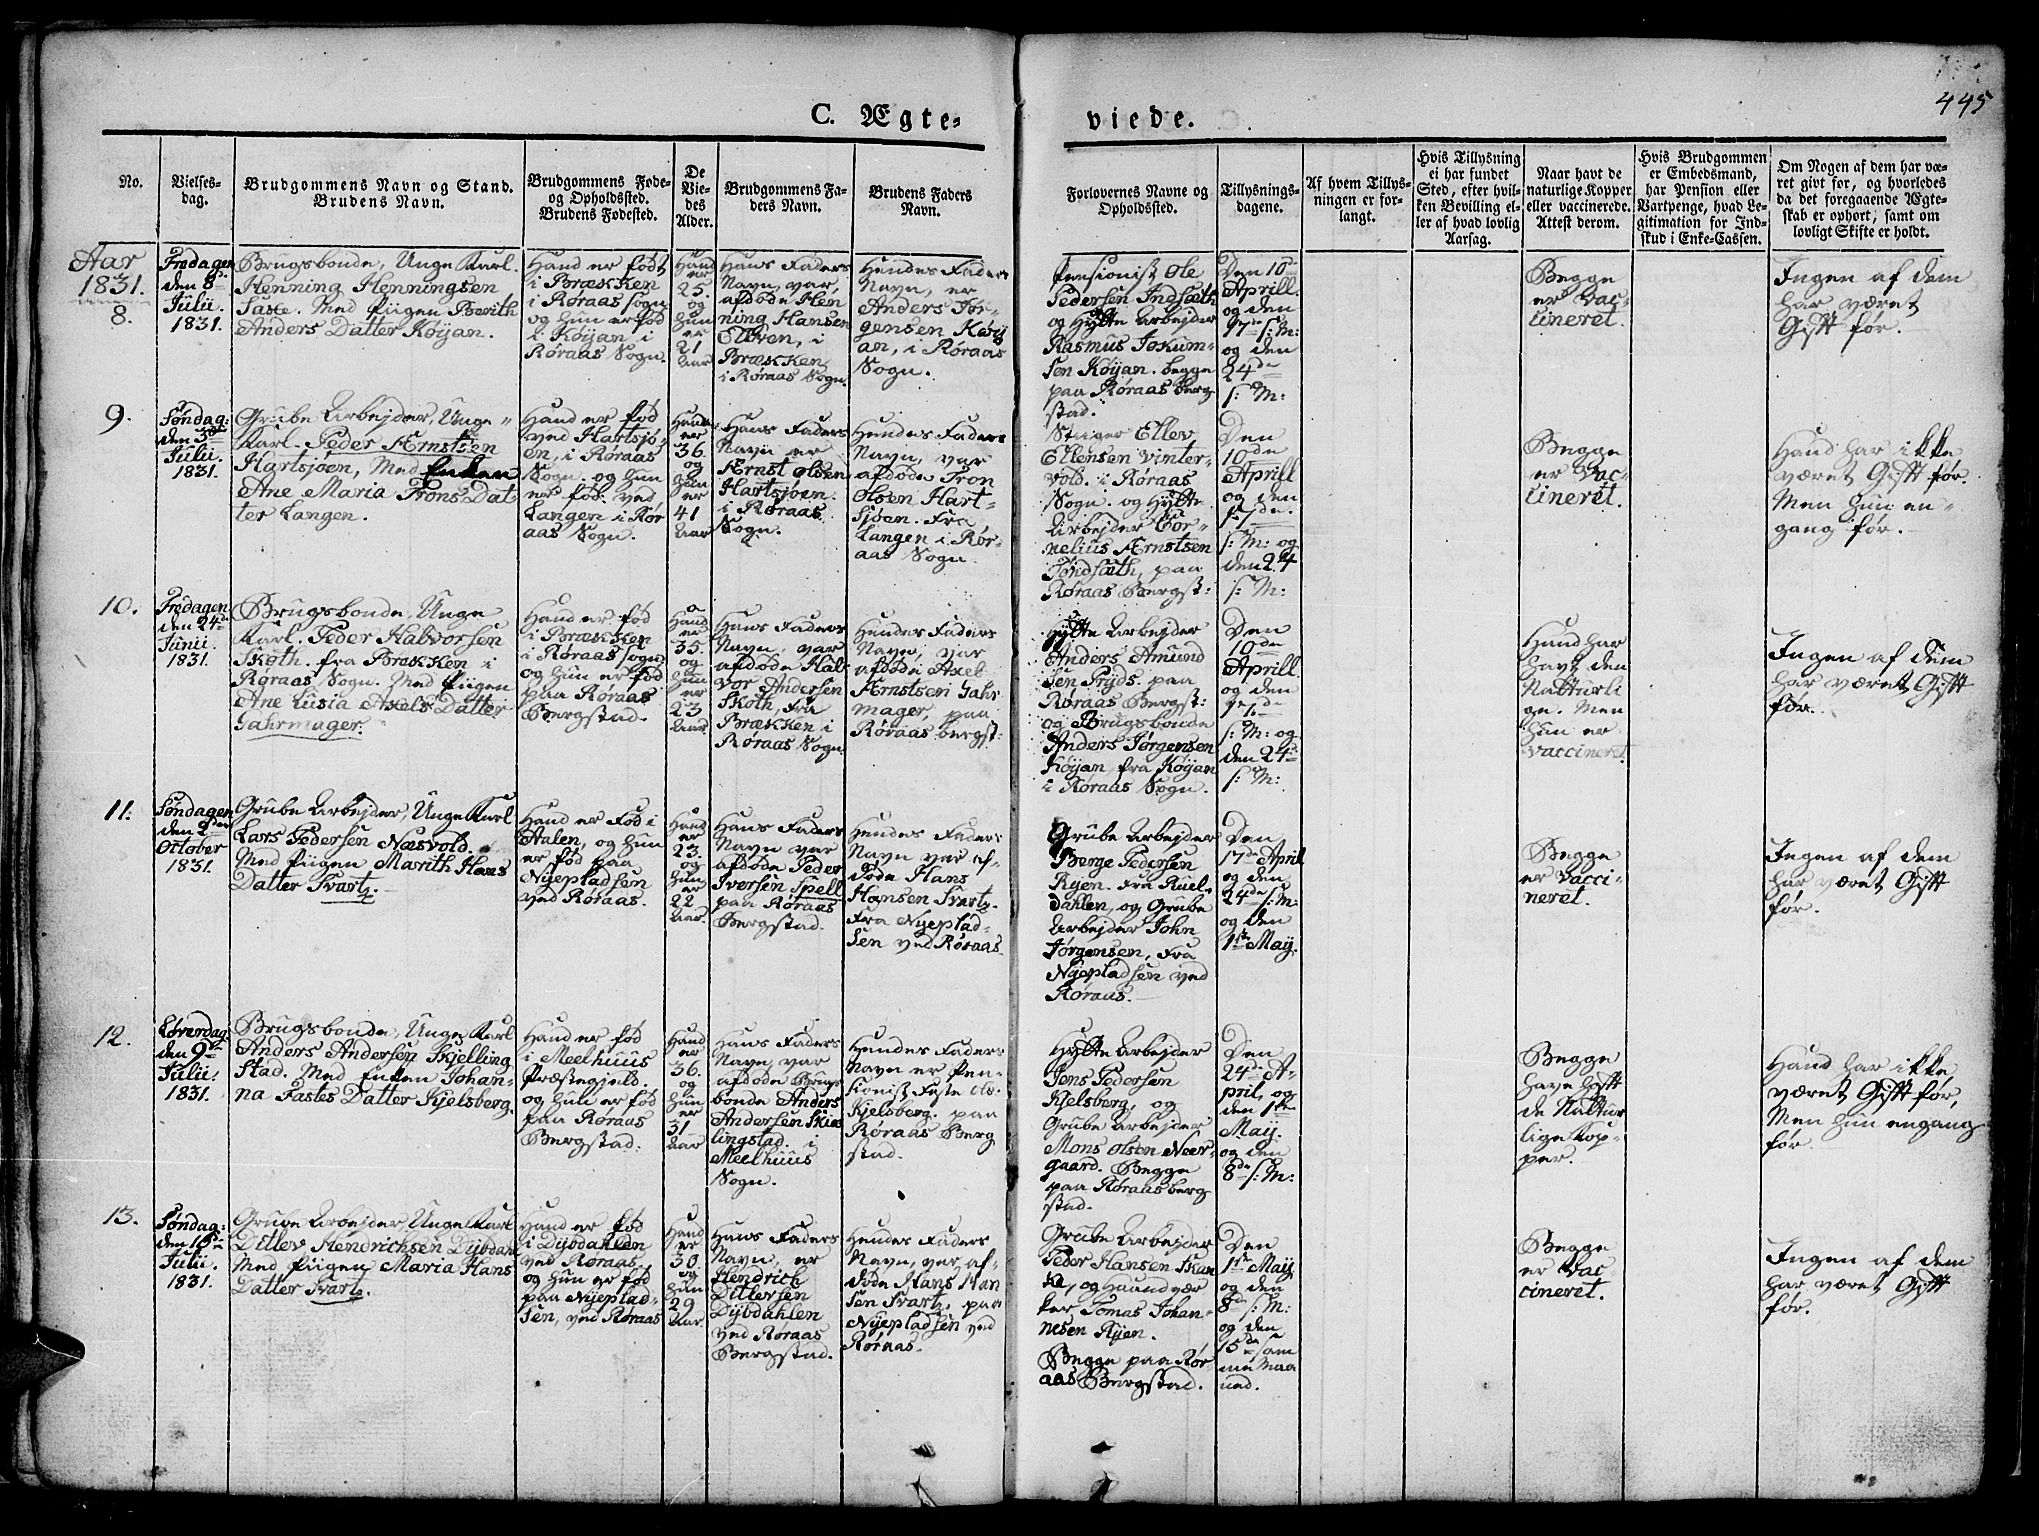 445
C. Ægte-
viede.
No.
Vielses-
dag.
Brudgommens Navn og Stand.
Brudens Navn.
Brudgommens Føde-
og Opholdssted.
Brudens Fødested.
De
Vie-
des
Alder.
Brudgommens Fa-
ders Navn.
Brudens Faders
Navn.
Forlovernes Navne og
Opholdssted.
Tillysnings-
dagene.
Af hvem Tillys-
ningen er for-
langt.
Hvis Tillysning
ei har fundet
Sted, efter hvil-
ken Bevilling el-
ler af hvad lovlig
Aarsag.
Naar havt de
naturlige Kopper
eller vaccinerede.
Attest derom.
Hvis Brudgommen
er Embedsmand,
har Pension eller
Vartpenge, hvad Le-
gitimation for Ind-
skud i Enke-Cassen.
Om Nogen af dem har væ-
ret givt før, og hvorledes
da det foregaaende Ægte-
skab er ophørt; samt om
lovligt Skifte er holdt.
Aar
1831.
8.
Fredagen
den 8de
Julii
1831.
Brugsbonde, Unge Karl.
Henning Henningsen
Med Piigen Berith
Anders Datter Køÿan.
Hand er født
i Brækken
i Røraas Sogn
og hun er fød
i Køÿan i
Røraas Sogn.
Hand
er
25.
og
hun
er
21
aar
Hans Faders
Navn, var,
afdøde Hen
ning Hansen
i
Brækken
i Røraas Sogn.
Hendes Faders
Navn, er
Anders Jør-
gensen Køÿ
an, i Røraas
Sogn.
Pensionist Ole
Pedersen Indsæth
og Hytte Arbejder
Rasmus Jokum-
sen Køÿan. begge
paa Røraas berg
stad.
Den 10de
Aprill.
og den
17de s: M:
og den
24de
s: M:
Begge
er vac-
cineret.
Ingen af dem
har været
Gift før.
9.
Søndag:
den 3de
Julii
1831.
Grube Arbejder, Unge-
Karl. Peder Ærnstsen
Hartsjøen, Med Enken
Ane Maria Trons Dat
ter Langen.
Hand er fød
ved Hartsjø-
en, i Røraas
Sogn. og hun
er fød ved
Langen i Rør
aas Sogn.
Hand
er
36.
og
hun
er
41
aar
Hans Faders
Navn er
Ærnst Olsen
Hartsjøen.
i Røraas
Sogn.
Hendes Faders
Navn, var
afdøde Tron
Olsen Hart-
sjøen. Fra
Langen i Rør-
aas Sogn.
Stiger Ellev
Ellensen Vinter-
vold. i Røraas
Sogn. og Hytte
Arbejder Cor-
nelius Ærnstsen
paa
Røraas Bergst:
Den
10de
Aprill
og den
17de.
s: M: og
den 24
s: M:
Begge
er vac-
cineret.
Hand har ikke
været Gift før.
Men hun en-
gang før.
10.
Fredagen
den 24de
Junii.
1831.
Brugsbonde, Unge
Karl. Peder Halvorsen
Skoth. fra Brækken i
Røraas Sogn. Med Piigen
Ane Lusia Axels Datter
Jahrmager.
Hand er fød
i Brækken
i Røraas Sogn:
og hun er fød
paa Røraas
Bergstad.
Hand
er
35.
og
hun
er
23
aar
Hans Faders
Navn, var
afdøde Hal-
vor Andersen
Skoth, fra
Brækken i
Røraas Sogn
Hendes Faders
Navn, var
afdøde Axel
Ærnstsen Jahr
mager, paa
Røraas bergst:
Hytte Arbejder
Anders Amund
sen Prÿds paa
Røraas Bergst:
og Brugsbonde
Anders Jørgensen
Køÿan fra Køÿan
i Røraas Sogn.
Den
10de
Aprill
og den
17de
s: M: og
den 24de
s: M:
Hand har
havt den
Naturli
ge. Men
hun er
vaccineret
Ingen af dem
har været Gift
før.
11.
Søndagen
den 2den
October
1831.
Grube Arbejder, Unge Karl
Lars Pedersen Næsvold.
Med Piigen Marith Hans
Datter Svartz.
Hand er Fød i
Aalen, og hun
er fød paa
Nÿepladsen
ved Røraas.
Hand
er
23.
og
hun
er
22
aar.
Hans Faders
Navn var
afdøde Peder
Iversen Spell
paa Røraas
Bergstad.
Hendes Faders
Navn var af-
døde Hans
Hansen Svartz.
fra Nÿeplad-
sen ved Røraas.
Grube Arbejder
Berge Pedersen
Rÿen. fra Ruel-
dahlen, og Grube
Arbejder John
Jørgensen, fra
Nÿepladsen ved
Røraas.
Den
17de April
og den
24de s: M:
og den
1ste Maÿ.
Begge
er vacci-
neret.
Ingen af dem
har været Gift
før.
12.
Løverdag
den 9de
Julii.
1831.
Brugsbonde, Unge Karl
Anders Andersen Skjelling
stad. Med Enken Johan-
na Fastes Datter Kjelsberg.
Hand er fød
i Meelhuus
Præstegjeld.
og hun er fød
paa Røraas
Bergstad.
Hand
er
36.
og
hun
er
31
aar
Hans Faders
Navn, var
afdøde Brugs
bonde Anders
Andersen Skiel
lingstad. i
Meelhuus
Sogn.
Hendes Faders
Navn er Pen-
sionist Faste Ols:
Kjelsberg. paa
Røraas Berg
stad.
Hytte Arbejder
Jens Pedersen
Kjelsberg, og
Grube Arbejder
Mons Olsen Neer-
gaard. Begge
paa Røraas berg
stad.
Den
24de A-
pril, og
den 1ste
Maÿ.
og den
8de s: M:
Begge
have haft
de Natur
lige Kop-
per.
Hand har ikke
været Gift før,
Men hun engang
før.
13.
Søndag:
den 10de
Julii.
1831.
Grube Arbejder, Unge Karl
Ditlev Hendrichsen Dÿbdahl
Med Piigen Maria Hans
Datter Svartz.
Hand er fød
i Dÿbdahlen
ved Røraas,
og hun er fød
paa Nÿeplad-
sen, ved Røraas
Hand
er
30.
og
hun
29
aar
Hans Faders
Navn, er
Hendrich
Ditlersen
Dÿbdahlen
ved Røraas
Bergstad.
Hendes Faders
Navn, var, af-
døde Hans Han
sen Svartz, paa
Nÿepladsen ved
Røraas.
Grube Arbejder
Peder Hansen Skan
ke, og Haandvær
ker Tomas Johan-
nesen Rÿen.
Begge paa Rør
aas Bergstad.
Den
1ste Maÿ
og den
8de s: M:
og den
15de sam
me Maa
ned.
Begge
er vac
cineret.
Ingen af dem
har været Gift
før.